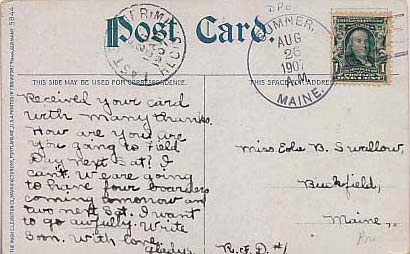 Post Card.
SUMNER,
AUG
26
1907
A.M.
MAINE.
DPO
THIS SPACE MAY BE USED FOR CORRESPONDENCE.
THIS SPACE FOR ADDRESS
Received your card
with many thanks.
How are you are
you going to Field
Day next Sat? I
can't. We are going
to have four boarders
coming tomorrow and
two next Sat. I want
to go awfully. Write
soon. With love.
Gladys.
Miss Eola B. Swallow,
Buckfield,
Maine.
R.F.D. #1